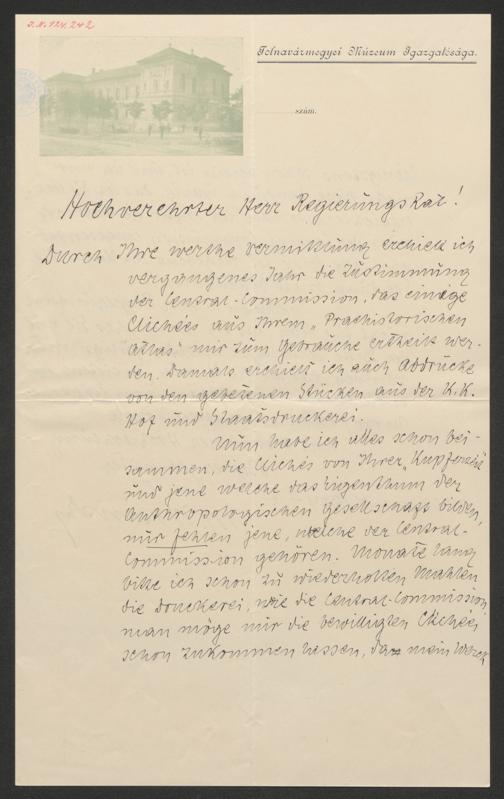 I.N. 124.242
Tolnavármegyei Múzeum Igazgatósága.
szám.
Hochverehrter Herr Regierungsrat!
Durch Ihre werthe Vermittlung erhielt ich
vergangenes Jahr die Zustimmung
der Central-Commission, das einige
Clichées aus Ihrem „Praehistorischen
Atlas" mir zum Gebrauche ertheilt wer-
den. Damals erhielt ich auch Abdrücke
von den gebetenen Stücken aus der K.K.
Hof und Staatsdruckerei.
Nun habe ich alles schon bei-
sammen, die Clichés von Ihrer „Kupferzeit"
und jene welche das Eigenthum der
Anthropologischen Gesellschaft bilden,
nur fehlen jene, welche der Central-
Commission gehören. Monate lang
bitte ich schon zu wiederholten Mahlen
die Druckerei, wie die Central-Commission,
man möge mir die bewilligten Clichées
schon zukommen lassen, da mein Werck